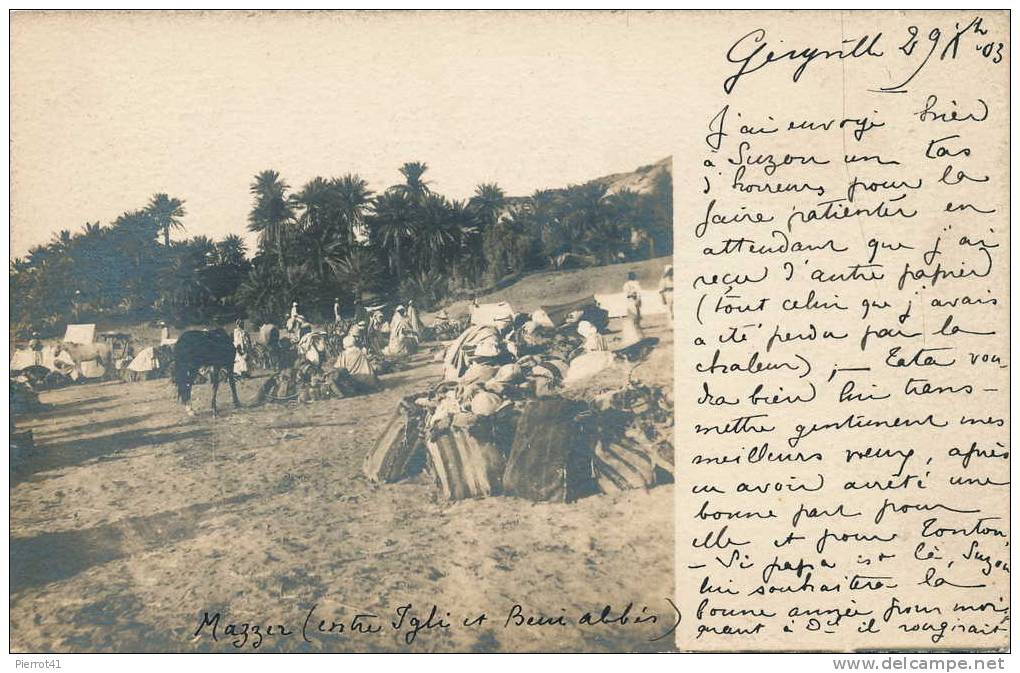 Géryville 29 Xbre 03
J'ai envoyé hier
à Suzon un tas
d'horreurs pour la
faire patienter en
attendant que j'ai
reçu d'autre papier
(tout celui que j'avais
a été perdu par la
chaleur) ; — Tata vou-
dra bien lui trans-
mettre gentiment mes
meilleurs vœux, après
en avoir arrêté une
bonne part pour
elle et pour Tonton,
- Si papa est là, Suzon
lui souhaitera la
bonne année pour moi,
quant à il rougirait
Mazzer (entre Igli et Beni abbès)
Pierrot41
www.delcampe.net